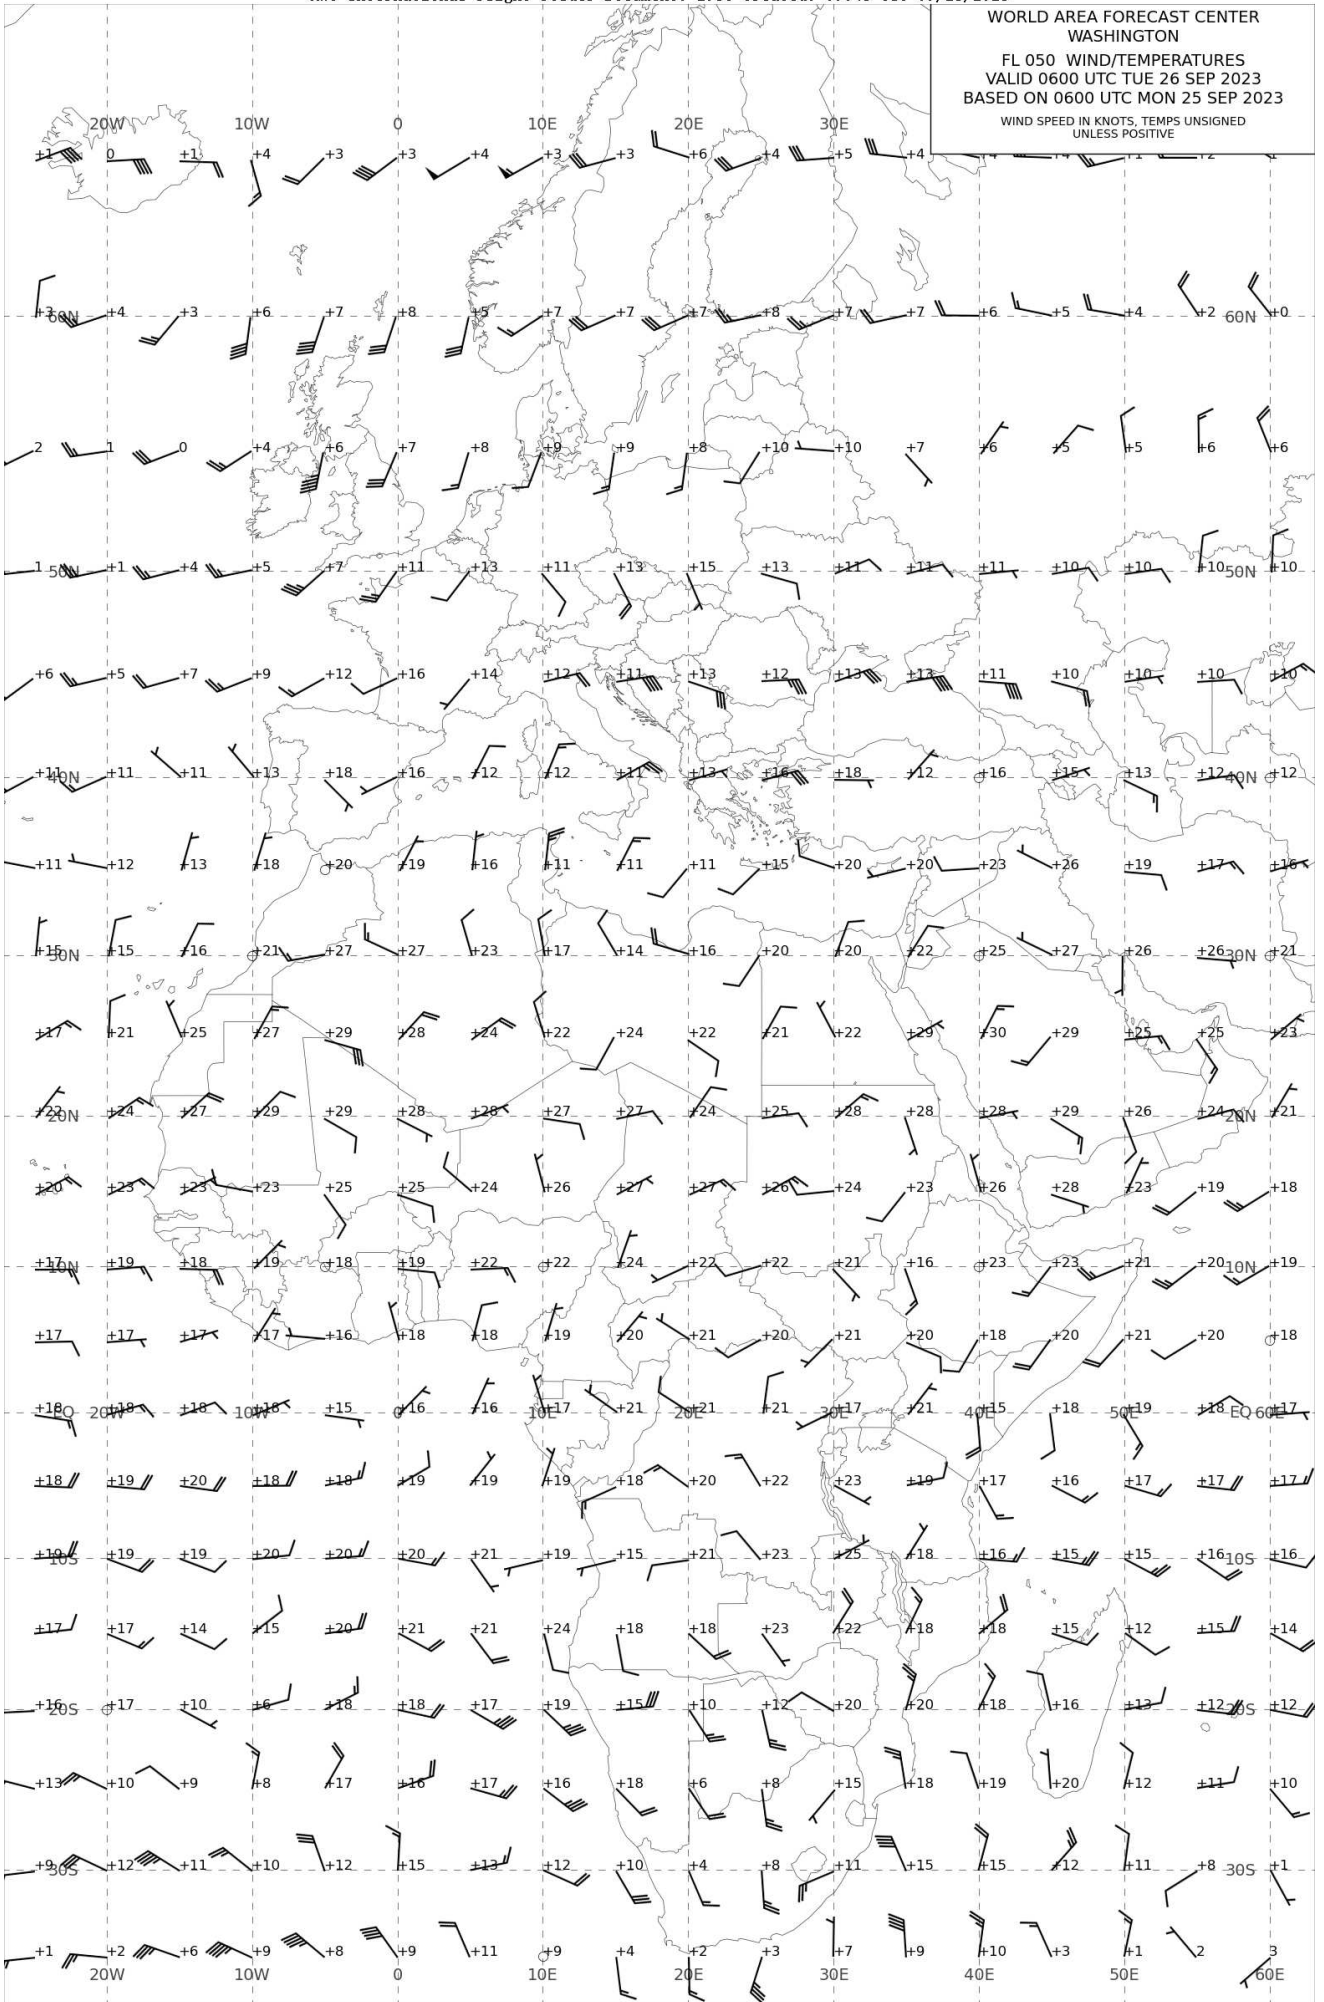 WORLD AREA FORECAST CENTER
WASHINGTON
FL 050 WIND/TEMPERATURES
VALID 0600 UTC TUE 26 SEP 2023
BASED ON 0600 UTC MON 25 SEP 2023
WIND SPEED IN KNOTS, TEMPS UNSIGNED
UNLESS POSITIVE
20W 10W 0 10E 20E 30E
+1 0 +1 +4 +3 +3 +4 +3 +3 +6 +4 +5 +4
+3 60N +4 +3 +6 +7 +8 +5 +7 +7 +7 +8 +7 +7 +6 +5 +4 +2 60N +0
2 1 0 +4 +6 +7 +8 +9 +9 +8 +10 +10 +7 +6 +5 +5 +6 +6
1 50N +1 +4 +5 +7 +11 +13 +11 +13 +15 +13 +11 +11 +11 +10 +10 +10 50N +10
+6 +5 +7 +9 +12 +16 +14 +12 +11 +13 +12 +13 +13 +11 +10 +10 +10 +10
+11 40N +11 +11 +13 +18 +16 +12 +12 +11 +13 +16 +18 +12 +16 +15 +13 +12 40N +12
+11 +12 +13 +18 +20 +19 +16 +11 +11 +11 +15 +20 +20 +23 +26 +19 +17 +16
+15 30N +15 +16 +21 +27 +27 +23 +17 +14 +16 +20 +20 +22 +25 +27 +26 +26 30N +21
+17 +21 +25 +27 +29 +28 +24 +22 +24 +22 +21 +22 +29 +30 +29 +25 +25 +23
+22 20N +24 +27 +29 +29 +28 +28 +27 +27 +24 +25 +28 +28 +28 +29 +26 +24 20N +21
+20 +23 +23 +23 +25 +25 +24 +26 +27 +27 +26 +24 +23 +26 +28 +23 +19 +18
+17 10N +19 +18 +19 +18 +19 +22 +22 +24 +22 +22 +21 +16 +23 +23 +21 +20 10N +19
+17 +17 +17 +17 +16 +18 +18 +19 +20 +21 +20 +21 +20 +18 +20 +21 +20 +18
+18 EQ 20W +18 +18 10W +18 +15 0 +16 +16 10E +17 +21 20E +21 +21 30E +17 +21 40E +15 +18 50E +19 +18 EQ 60E +17
+18 +19 +20 +18 +18 +19 +19 +19 +18 +20 +22 +23 +19 +17 +16 +17 +17 +17
+19 10S +19 +19 +20 +20 +20 +21 +19 +15 +21 +23 +25 +18 +16 +15 +15 +16 10S +16
+17 +17 +14 +15 +20 +21 +21 +24 +18 +18 +23 +22 +18 +18 +15 +12 +15 +14
+16 20S +17 +10 +6 +18 +18 +17 +19 +15 +10 +12 +20 +20 +18 +16 +13 +12 20S +12
+13 +10 +9 +8 +17 +16 +17 +16 +18 +6 +8 +15 +18 +19 +20 +12 +11 +10
+9 30S +12 +11 +10 +12 +15 +13 +12 +10 +4 +8 +11 +15 +15 +12 +11 +8 30S +1
+1 +2 +6 +9 +8 +9 +11 +9 +4 +2 +3 +7 +9 +10 +3 +1 2 3
20W 10W 0 10E 20E 30E 40E 50E 60E